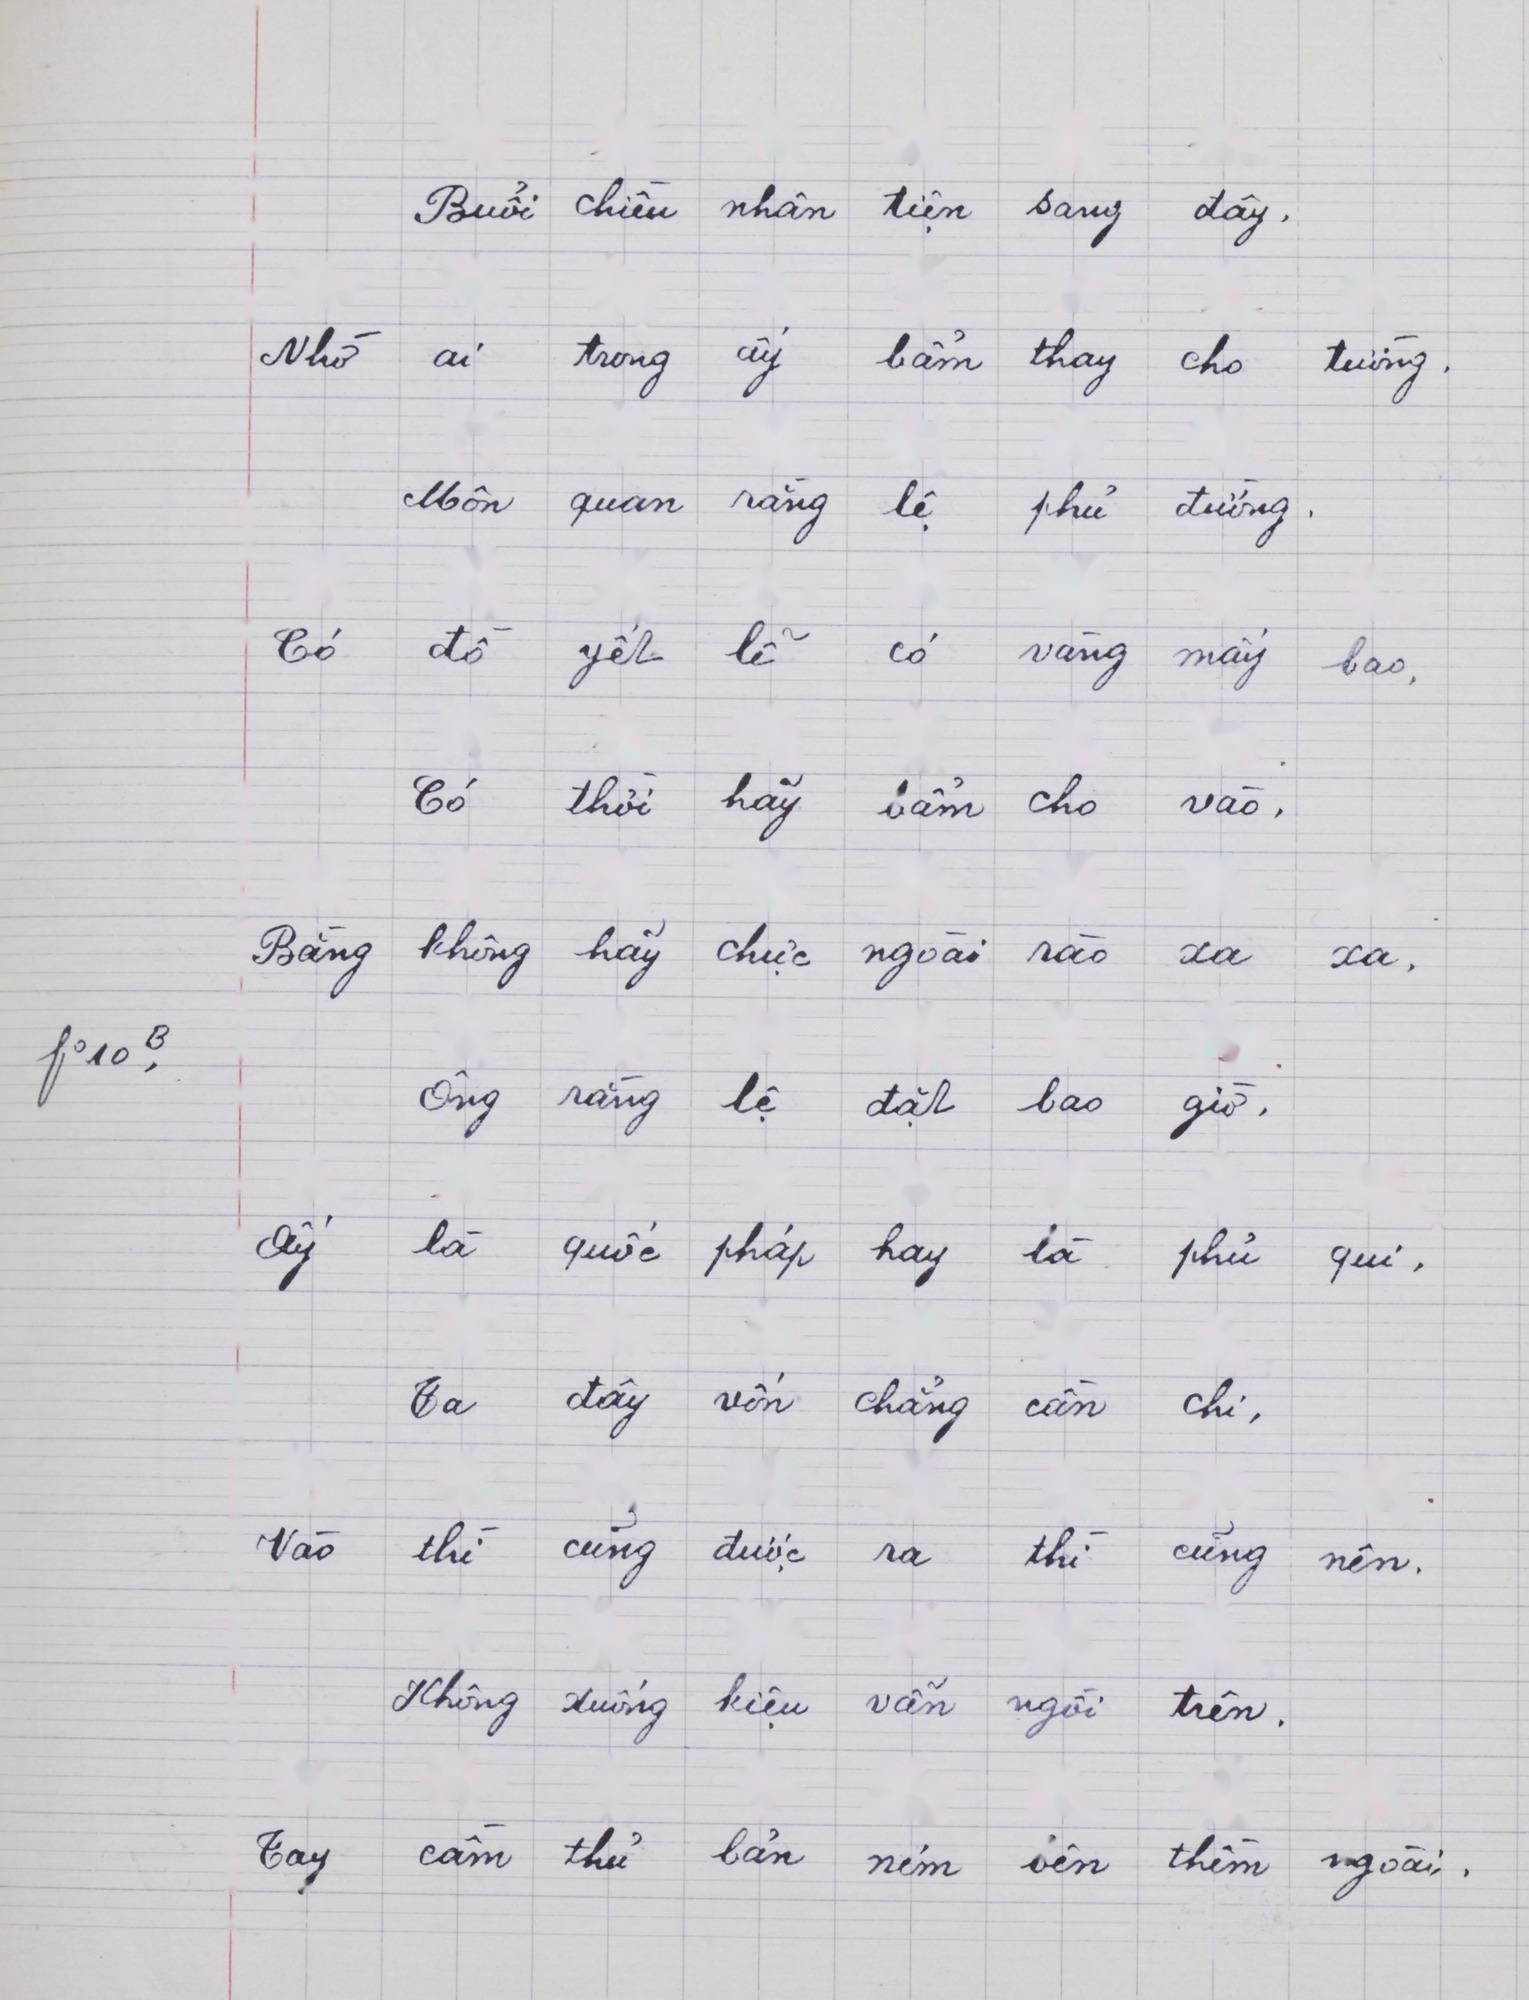 Buổi chiều nhân tiện sang đây.
Nhờ ai trong ấy bẩm thay cho tường.
Môn quan rằng lệ phủ đường.
Có đồ yết lễ có vàng mấy bao,
Có thời hãy bẩm cho vào,
Bằng không hãy chực ngoài rào xa xa,
fº 10 B,
Ông rằng lệ đặt bao giờ,
Ấy là quốc pháp hay là phủ qui,
Ta đây vốn chẳng cần chi,
Vào thì cũng được ra thì cũng nên.
Không xuống kiệu vẫn ngồi trên.
Tay cầm thủ bản ném bên thềm ngoài.